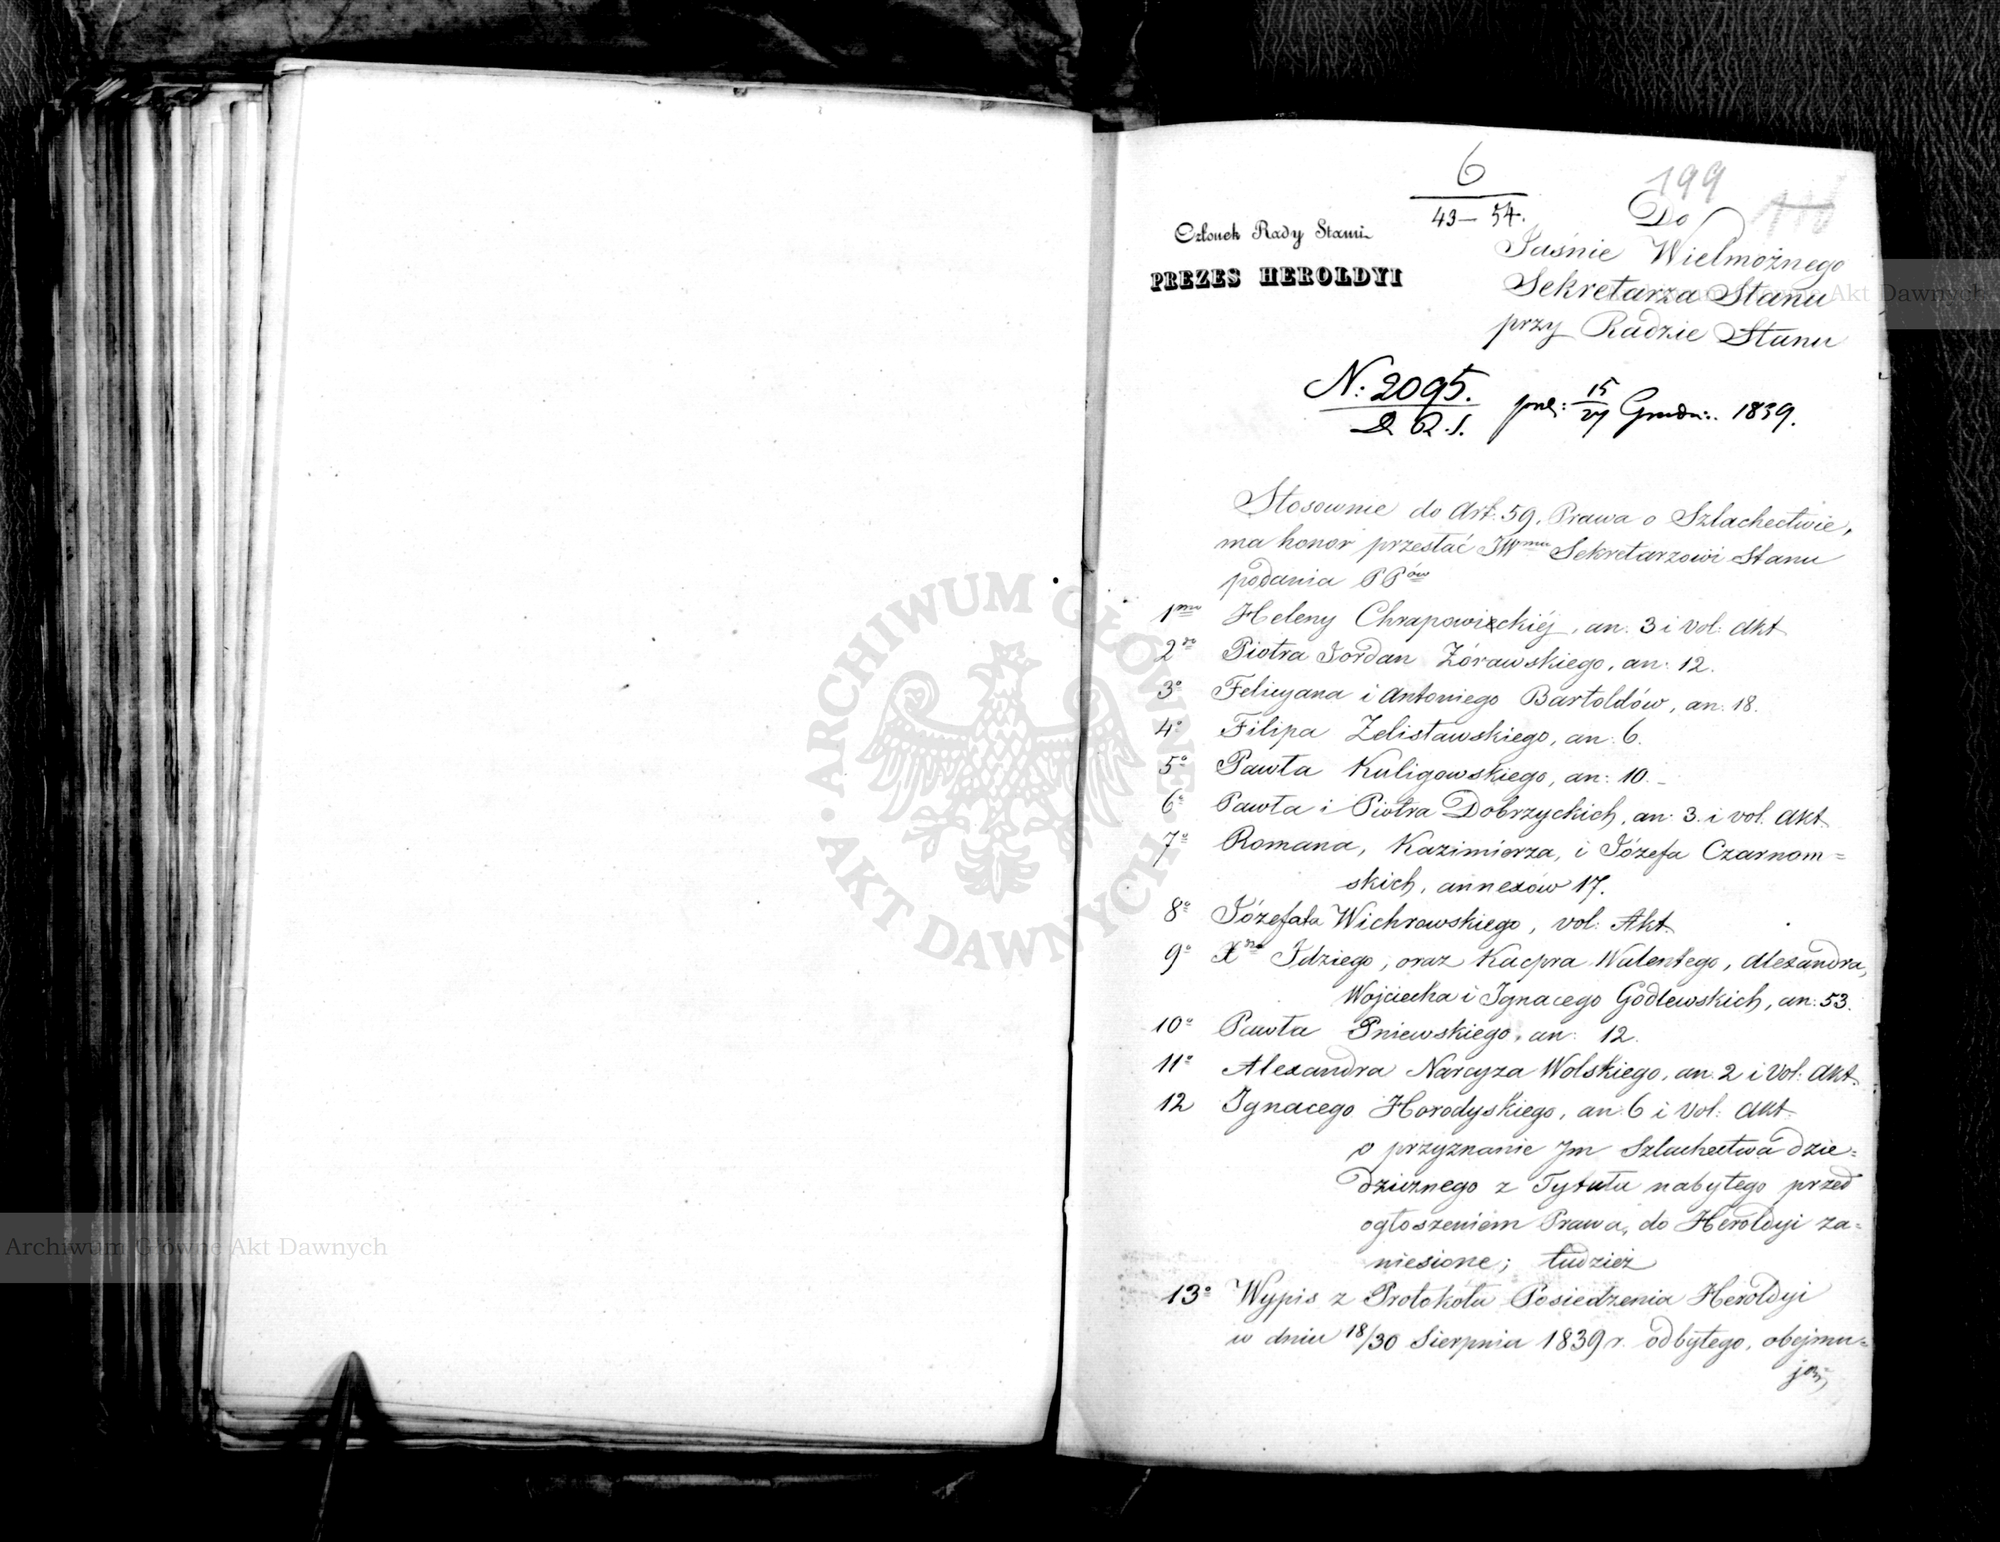 6
43 – 54.
199
Człouek Rady Stanu
PREZES HEROLDYI
Do
Jaśnie Wielmożnego
Sekretarza Stanu
przy Radzie Stanu
N: 2095.
15/27 Grudn: 1839.
Stosownie do Art. 59. Prawa o Szlachectwie,
ma honor przesłać JWmu Sekretarzowi Stanu
podania PPów
1mo Heleny Chrapowickiéj, an. 3 i vol: Akt
2do Piotra Jordan Żórawskiego, an: 12.
3o Felicyana i Antoniego Bartoldów, an: 18.
4o Filipa Zelisławskiego, an. 6.
5o Pawła Kuligowskiego, an: 10.–
6o Pawła i Piotra Dobrzyckich, an: 3. i vol. Akt.
7o Romana, Kazimierza, i Józefa Czarnom=
skich, annexów 17.
8o Józefata Wichrowskiego, vol: Akt.
9o Idziego, oraz Kacpra Walentego, Alexandra,
Wojciecha i Ignacego Godlewskich, an: 53.
10o Pawła Pniewskiego, an: 12.
11o Alexandra Narcyza Wolskiego, an. 2 i Vol: Akt.
12 Ignacego Horodyskiego, an. 6 i Vol: Akt.
o przyznanie Jm Szlachectwa dzie=
dzicznego z Tytułu nabytego przed
ogłoszeniem Prawa, do Heroldyi za=
niesione; tudzież
13o Wypis z Protokółu Posiedzenia Heroldyi
w dniu 18/30 Sierpnia 1839 r. odbytego, obejmu=
ARCHIWUM GŁÓWNE
AKT DAWNYCH
Archiwum Główne Akt Dawnych
Archiwum Główne Akt Dawnych